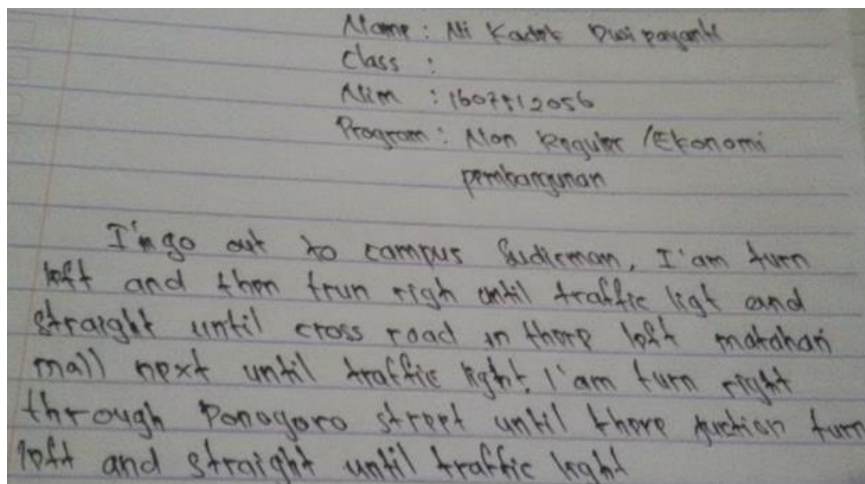 Name : Ni Kadek Dwi payanti
Class :
Nim : 1607512056
Program : Non Reguler /Ekonomi
pembangunan
I'm go out to campus Sudirman, I'am turn
left and then trun righ until traffic ligt and
straight until cross road in there left matahari
mall next until traffic light. I'am turn right
through Ponogoro street until there juction turn
left and straight until traffic light